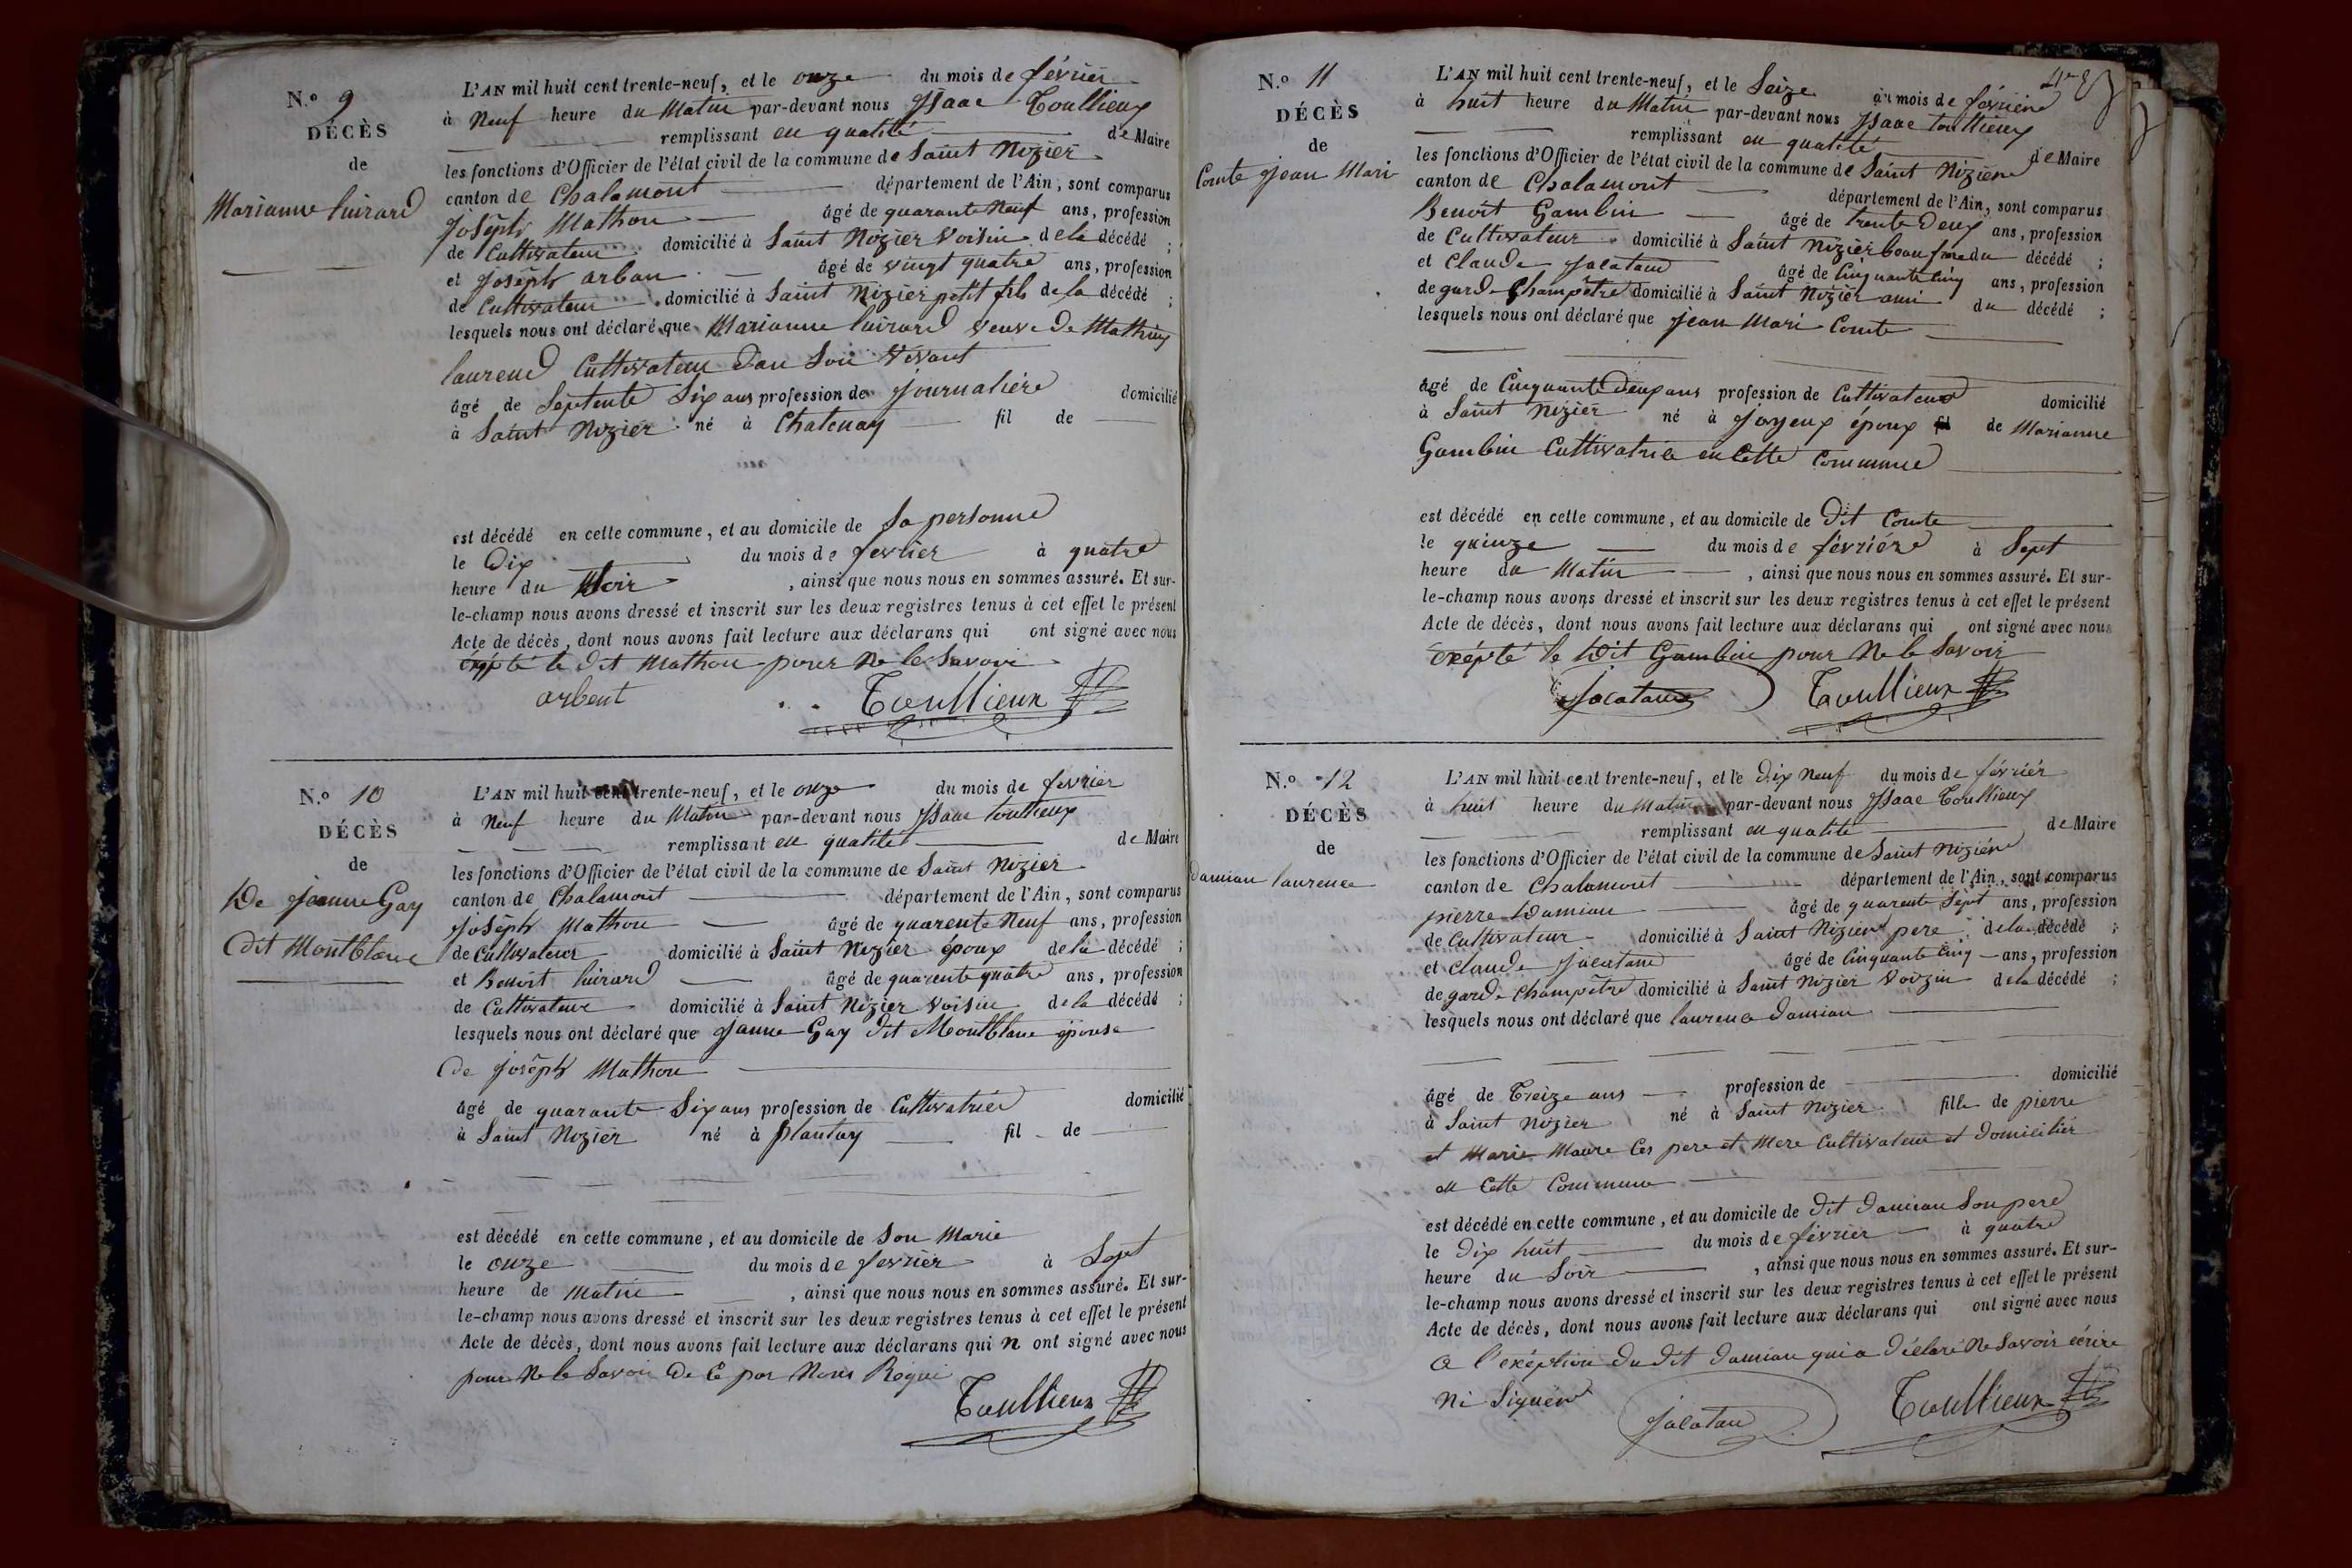 N.º 9
DÉCÈS
de
Marianne luirard
L'AN mil huit cent trente-neuf, et le onze du mois de février
à Neuf heure du Matin par-devant nous Isaac Toullieux
remplissant en qualité de Maire
les fonctions d'Officier de l'état civil de la commune de Saint Nizier
canton de Chalamont département de l'Ain, sont comparus
Joséph Mathon âgé de quarante Neuf ans, profession
de Cultivateur domicilié à Saint Nizier Voisin dela décédé ;
et Joséph arban âgé de vingt quatre ans, profession
de Cultivateur domicilié à Saint Nizier petit fils de la décédé ;
lesquels nous ont déclaré que Marianne luirard veuve de Mathieu
laurend Cultivateur dan Son Vivant
âgé de Séptente Six ans profession de Journalière domicilié
à Saint Nizier né à Chatenay fil de
est décédé en cette commune, et au domicile de Sa personne
le Dix du mois de fevrier à quatre
heure du Soir , ainsi que nous nous en sommes assuré. Et sur-
le-champ nous avons dressé et inscrit sur les deux registres tenus à cet effet le présent
Acte de décès, dont nous avons fait lecture aux déclarans qui ont signé avec nous
le dit Mathon pour Ne le Savoir
arbent Toullieux
N.º 10
DÉCÈS
de
De Jeanne Gay
Dit Montblanc
L'AN mil huit cent trente-neuf, et le onze du mois de fevrier
à Neuf heure du Matin par-devant nous Isaac toullieux
remplissant en qualité de Maire
les fonctions d'Officier de l'état civil de la commune de Saint Nizier
canton de Chalamont département de l'Ain, sont comparus
Joséph Mathon âgé de quarente Neuf ans, profession
de Cultivateur domicilié à Saint Nizier époux de la décédé ;
et Benoit luirard âgé de quarente quatre ans, profession
de Cultivateur domicilié à Saint Nizier Voisin de la décédé ;
lesquels nous ont déclaré que Janne Gay dit Montblanc épouse
de Joséph Mathon
âgé de quarante Six ans profession de Cultivatrice domicilié
à Saint Nizier né à plantay fil de
est décédé en cette commune, et au domicile de Son Marie
le onze du mois de fevrier à Sept
heure de Matin , ainsi que nous nous en sommes assuré. Et sur-
le-champ nous avons dressé et inscrit sur les deux registres tenus à cet effet le présent
Acte de décès, dont nous avons fait lecture aux déclarans qui n ont signé avec nous
pour Ne le Savoir De Ce par Nous Requi
Toullieux
N.º 11
DÉCÈS
de
Comte Jean Mari
L'AN mil huit cent trente-neuf, et le Seize du mois de février
à huit heure du Matin par-devant nous Isaac toullieux
remplissant en qualité de Maire
les fonctions d'Officier de l'état civil de la commune de Saint Nizier
canton de Chalamont département de l'Ain, sont comparus
Benoit Gambin âgé de trente Deux ans, profession
de Cultivateur domicilié à Saint Nizier beau frere du décédé ;
et Claude Jacatand âgé de Cinquante Cinq ans, profession
de gard-Champêtre domicilié à Saint Nizier ami du décédé ;
lesquels nous ont déclaré que Jean Mari Comte
âgé de Cinquante Deux ans profession de Cultivateur domicilié
à Saint Nizier né à Joyeux époux fil de Marianne
Gambin Cultivatrice en Cette Commune
est décédé en cette commune, et au domicile de Dit Comte
le quinze du mois de février à Sept
heure du Matin , ainsi que nous nous en sommes assuré. Et sur-
le-champ nous avons dressé et inscrit sur les deux registres tenus à cet effet le présent
Acte de décès, dont nous avons fait lecture aux déclarans qui ont signé avec nous
éxépté le Dit Gambin pour Ne le Savoir
Jacatand Toullieux
N.º 12
DÉCÈS
de
Damian laurence
L'AN mil huit cent trente-neuf, et le Dix Neuf du mois de février
à huit heure du Matin par-devant nous Isaac Toullieux
remplissant en qualité de Maire
les fonctions d'Officier de l'état civil de la commune de Saint Nizier
canton de Chalamont département de l'Ain, sont comparus
pierre Damian âgé de quarente Sépt ans, profession
de Cultivateur domicilié à Saint Nizier pere dela décédé ;
et claude Jacatand âgé de Cinquante Cinq ans, profession
de gard-Champêtre domicilié à Saint Nizier Voizin dela décédé ;
lesquels nous ont déclaré que laurence Damian
âgé de Treize ans profession de domicilié
à Saint Nizier né à Saint Nizier fille de pierre
et Marie Maure Ces pere et Mere Cultivateur et domicilier
en Cette Commune
est décédé en cette commune, et au domicile de dit Damian Son pere
le Dix huit du mois de février à quatre
heure du Soir , ainsi que nous nous en sommes assuré. Et sur-
le-champ nous avons dressé et inscrit sur les deux registres tenus à cet effet le présent
Acte de décès, dont nous avons fait lecture aux déclarans qui ont signé avec nous
a l'exéption du dit Damian qui a déclaré Ne Savoir écrire
Ni Signer
Jacatan Toullieux